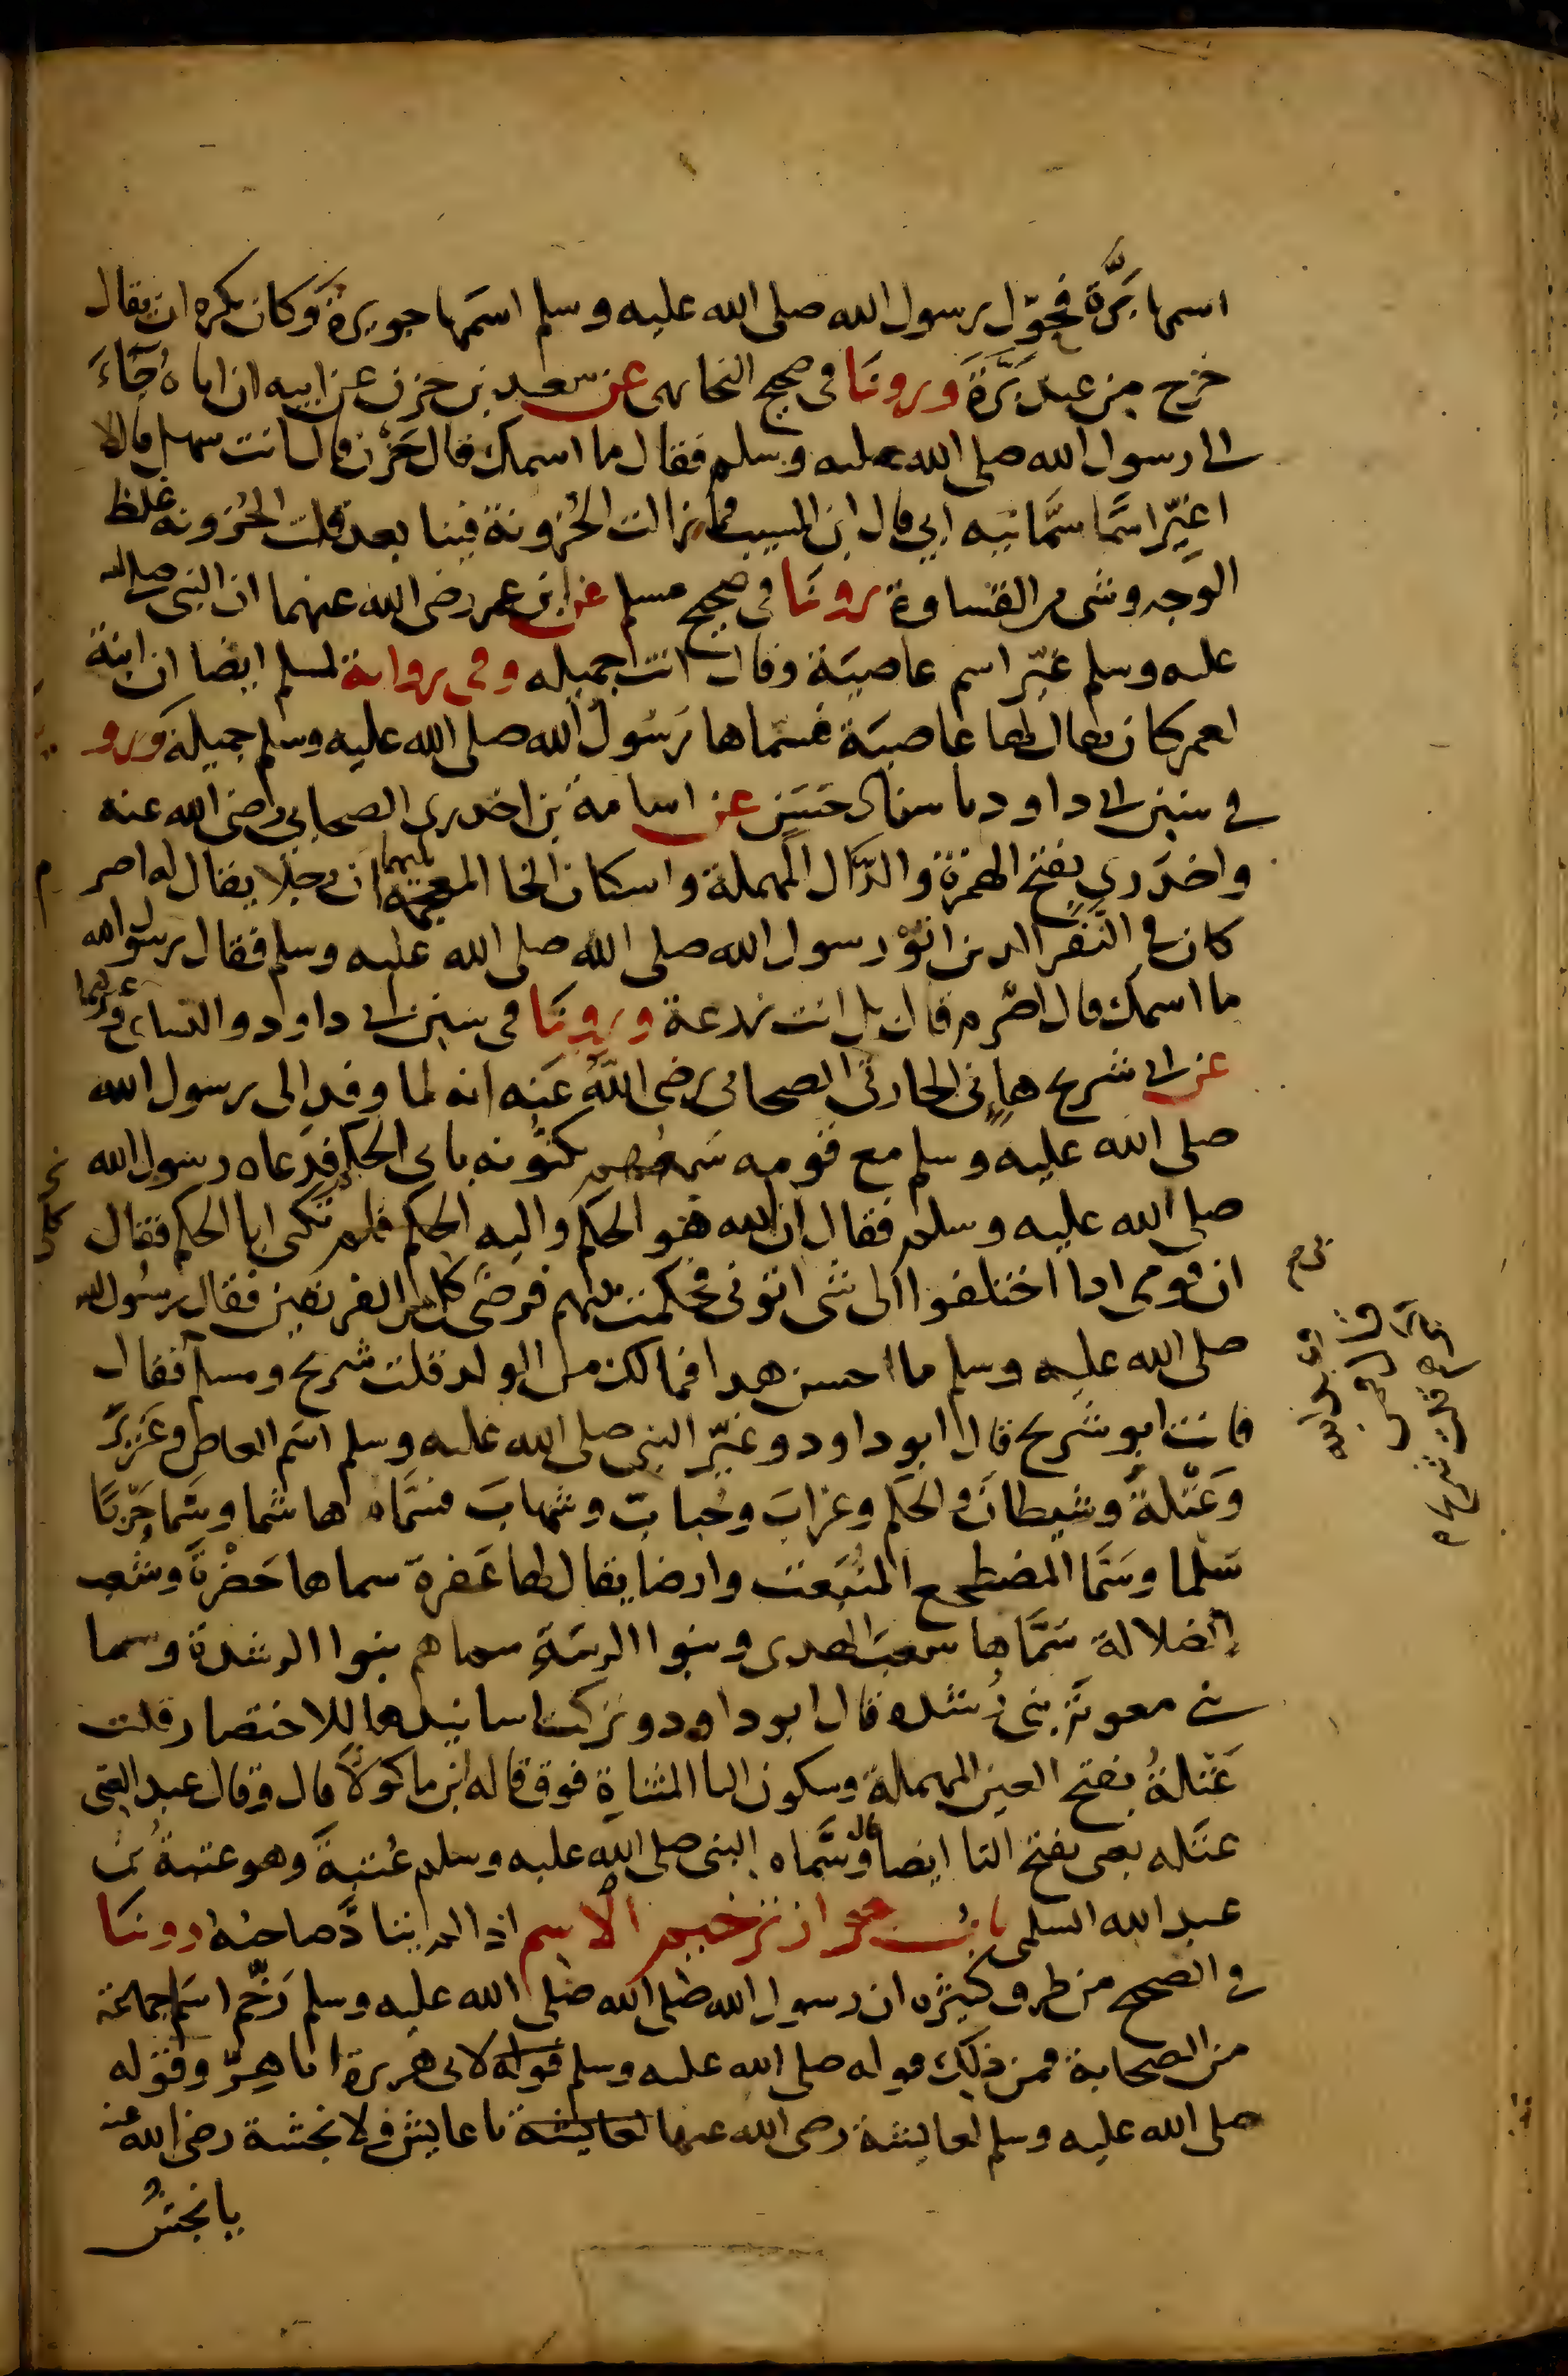 اسمها بَرَّة فحوّل رسول الله صلى الله عليه وسلم اسمَها جويرة وَكان يكره ان يقال
خرج من عند بَرَّةَ ورونَا فى صحيح البخارى عن سعيد بن حزن عن ابيه ان اباه جَآءَ
الى رسول الله صلى الله عليه وسلم فقال ما اسمك قال حَزْن قال انت سهل قال لا
اغيّر اسمًا سمَّانيه ابي قال ابن المسيب فما زالت الحُزونة فينا بعد قلت الحُزونه غلظ
الوجه وشى من القساوة رونَا فى صحيح مسلم عن ابن عمر رضى الله عنهما ان النبى صلى الله
عليه وسلم غيّر اسم عاصيَة وقال انت جميله وفى رواية لمسلم ايضا ان ابنة
لعمر كان يقال لها عاصيَة فسماها رَسُول الله صلى الله عليه وسلم جميلة ورو
فى سنن ابى داود باسناد حسَن عن اسامة بن اخدرى الصحابي رضى الله عنه
واخدَري بفتح الهمزة والدَّال المهملة واسكان الخا المعجمة بينهما ان رجلا يقال له اصرم
كان فى النَّفر الذين اتوْ رسول الله صلى الله صلى الله عليه وسلم فقال رسول الله
ما اسمك قال اصْرم قال بل انت زرعة ورونَا فى سنن ابى داود والنساى وغيرهما
عن ابى شريح هانى الحارثى الصحابى رضى اللهُ عَنه انه لما وفد الى رسول الله
صلى الله عليه وسلم مع قومه سَمعهم يكنُّونه بابى الحكم فدَعاه رسول الله
صلى الله عليه وسلم فقال ان الله هو الحكم واليه الحكم فلم تكنى ابا الحكم فقال
ان قومى اذا اختلفوا الى شى اتونى فحكمت بينهم فرضى كلا الفريقين فقال رسُول الله
صلى الله عليه وسلم ما احسن هذا فمالك من الولد قلت شريح ومسلم فقال
فانت ابو شريح قال ابو داود وغيّر النبى صلى الله عليه وسلم اسَم العاص وعَزيز
وَعَتْلةَ وشيطان والحكَم وغرابَ وحُبابَ وشهابَ فسَمَّاه هاشما وسَمَّا حَرْبًا
سَلما وسَمَّا المضطجع المنبَعث وارضا يقال لها عَفرة سماها خَضْرةَ وشعب
الضلالة سَمَّاها شعبَ الهدى وبنوا الزنيَةِ سماهم بنوا الرشدة وسما
بنى معويَة بنى رُشده قال ابو داود وتركت اسانيدها للاختصار قلت
عَتْلةُ بفتح العين المهملة وسكون التا المثناة فوق قاله ابن ماكولا قال وقال عبد الغنى
عتَله يعنى بفتح التا ايضا قال وسَمَّاه النبى صلى الله عليه وسلم عُتبةَ وهو عتبةُ بنُ
عبد الله السلمى بابُ جواز ترخيم الاسم اذا لم يتاذَّ صاحبُه رونَا
فى الصحيح من طرق كثيره ان رسول الله صلى الله صلى الله عليه وسلم رَخّم اسَم جماعة
من الصحابة فمن ذلك قوله صلى الله عليه وسلم قوله لابى هريرة ابا هِرّ وقوله
صلى الله عليه وسلم لعايشة رضى الله عنها لعايشة يا عايش ولانجشة رضى الله عنه
يا نجشُ